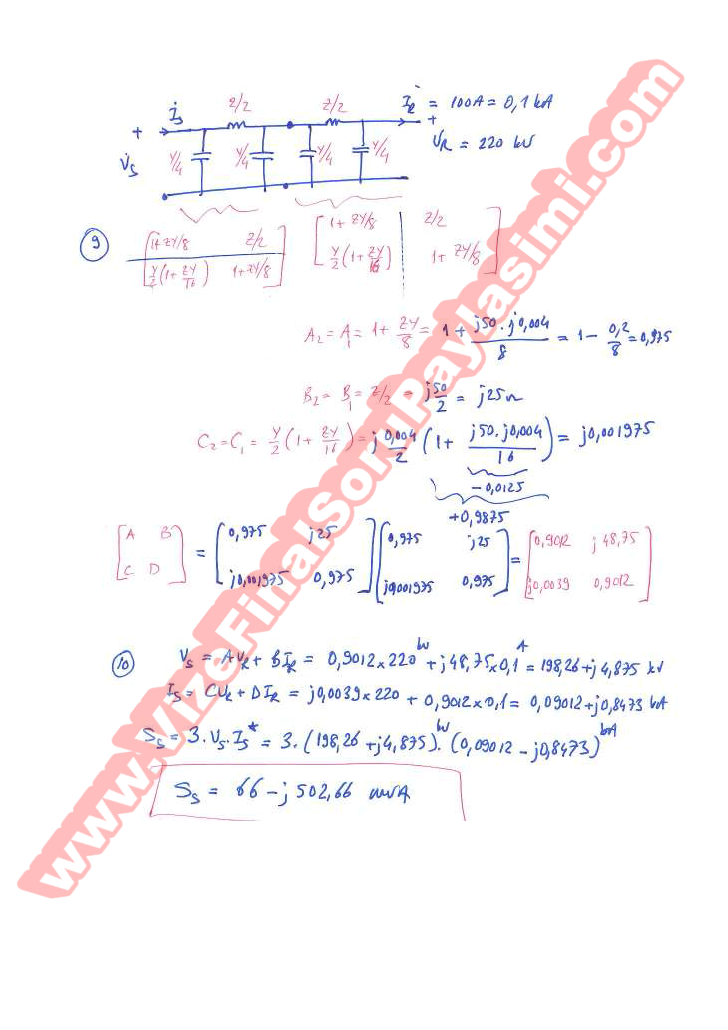 İs Z/2 Z/2 İR = 100A = 0,1 kA
+ +
V̇s Y/4 Y/4 Y/4 Y/4 V̇R = 220 kV
9
[1+ZY/8 Z/2] [1+ ZY/8 Z/2]
[Y/2(1+ZY/16) 1+ZY/8] [Y/2(1+ZY/16) 1+ZY/8]
A2 = A1 = 1+ ZY/8 = 1 + j50.j0,004/8 = 1 - 0,2/8 = 0,975
B2 = B1 = Z/2 = j50/2 = j25Ω
C2=C1 = Y/2(1+ ZY/16) = j0,004/2 (1+ j50.j0,004/16) = j0,001975
-0,0125
+0,9875
[A B] = [0,975 j25] [0,975 j25] = [0,9012 j48,75]
[C D] [j0,001975 0,975] [j0,001975 0,975] [j0,0039 0,9012]
10
Vs = AVR + BIR = 0,9012x220 kV + j48,75x0,1 A = 198,26+j4,875 kV
Is = CVR + DIR = j0,0039x220 + 0,9012x0,1 = 0,09012+j0,8473 kA
Ss = 3.Vs.Is* = 3.(198,26+j4,875) kV.(0,09012-j0,8473) kA
Ss = 66 - j502,66 MVA
www.VizeFinalSoruPaylasimi.com